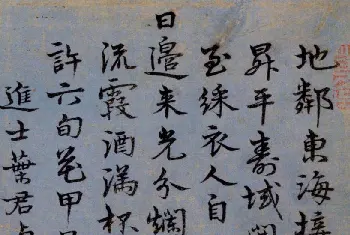 地鄰東海接
昇平壽域
至綵衣人自
日邊来光分爛
流霞酒滿杯
許六旬花甲
進士葉君